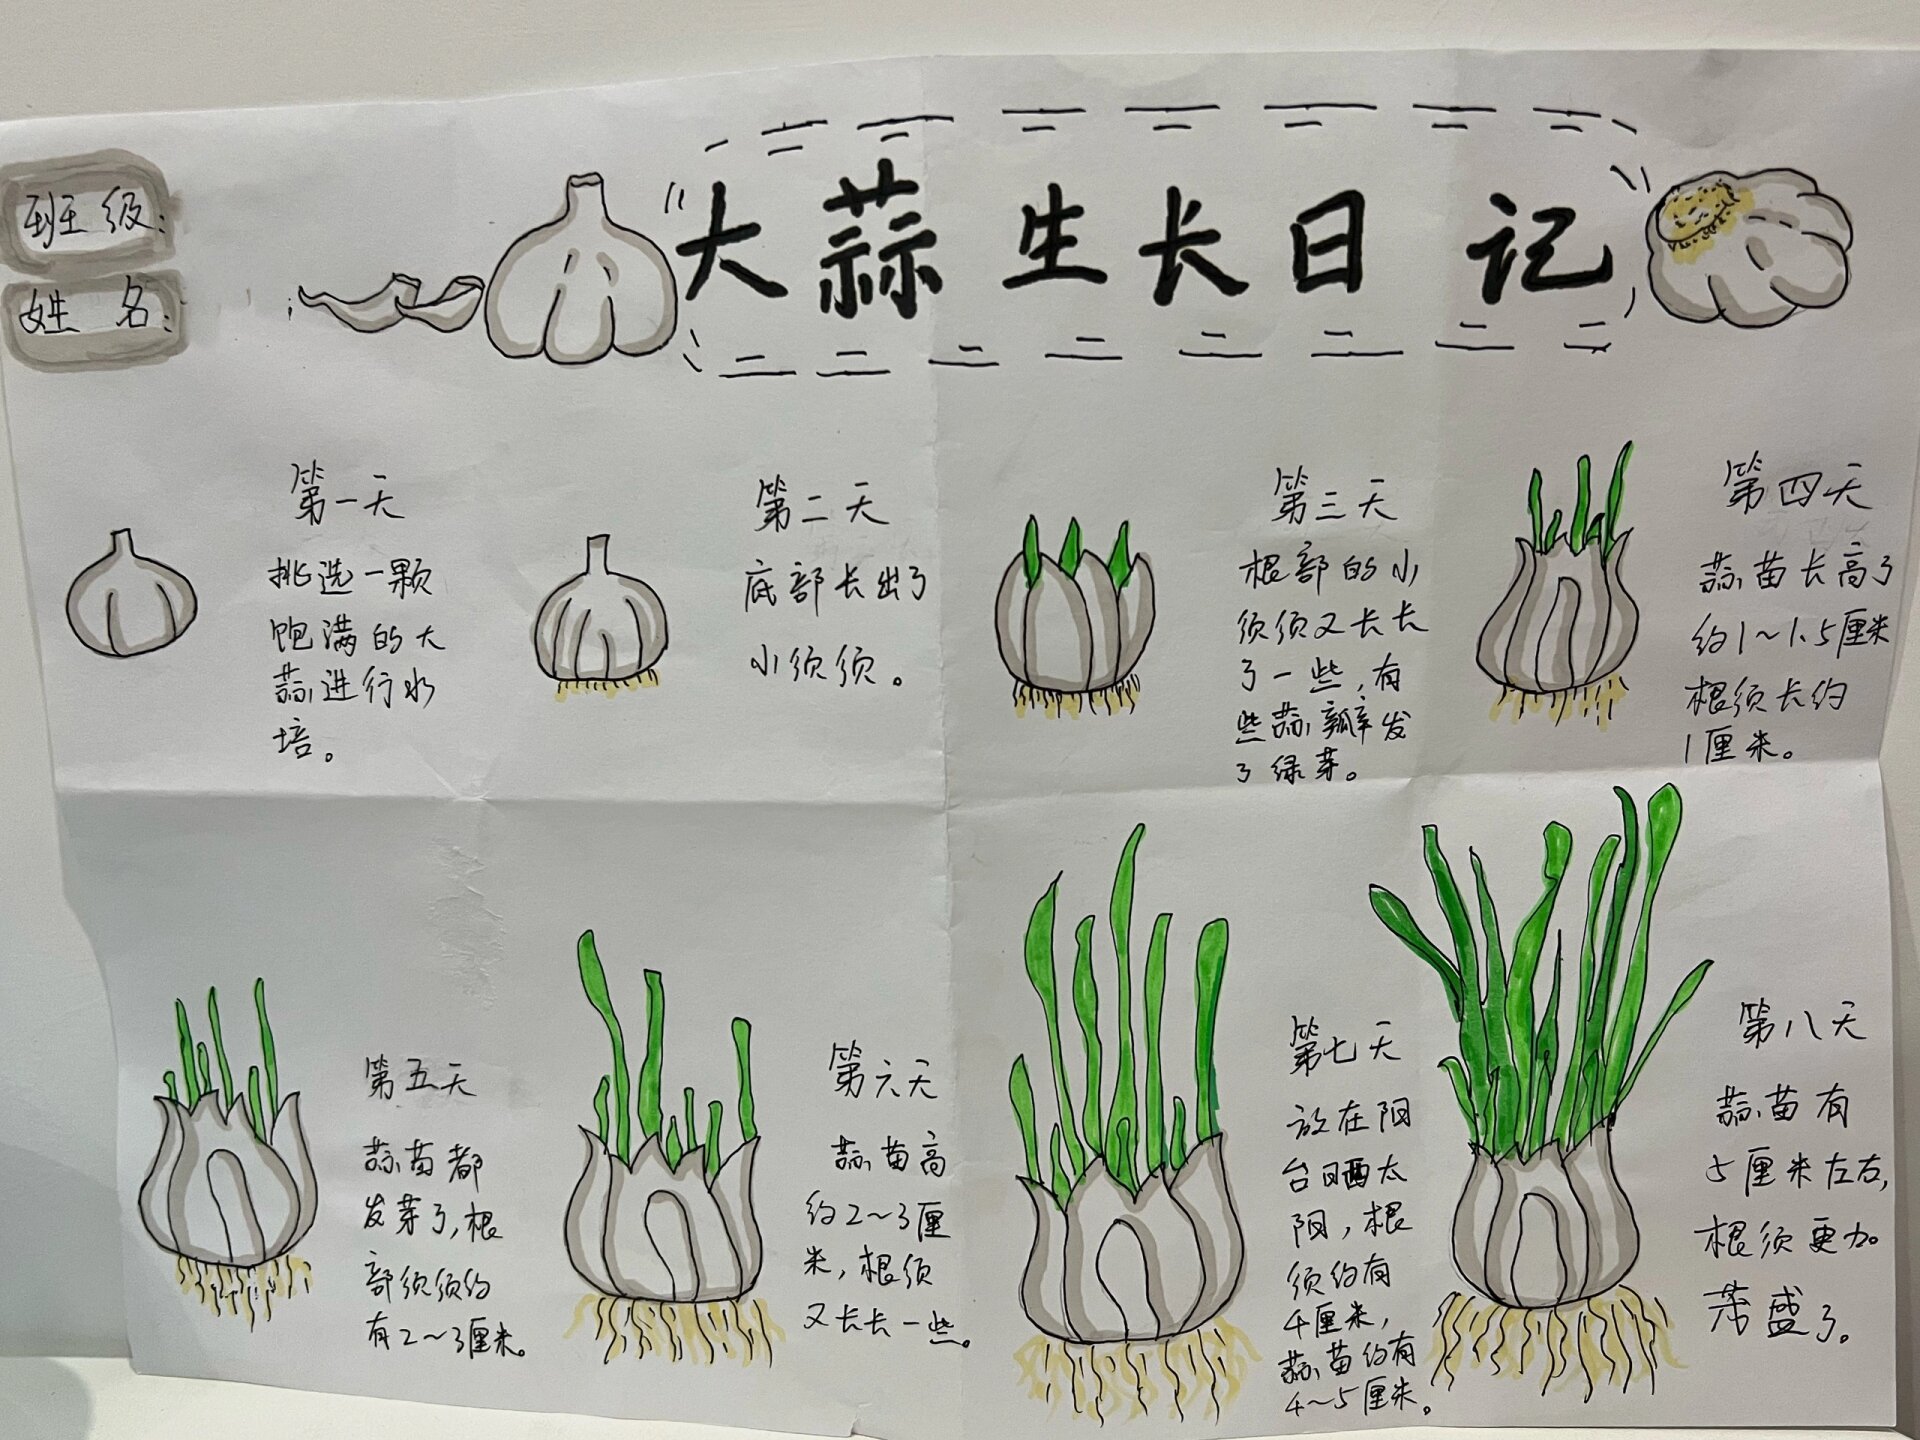 班级:
姓名:
“大蒜生长日记
第一天
挑选一颗
饱满的大
蒜进行水
培。
第二天
底部长出了
小须须。
第三天
根部的小
须须又长长
了一些,有
些蒜瓣发
了绿芽。
第四天
蒜苗长高了
约1~1.5厘米
根须长约
1厘米。
第五天
蒜苗都
发芽了,根
部须须约
有2~3厘米。
第六天
蒜苗高
约2~3厘
米,根须
又长长一些。
第七天
放在阳
台晒太
阳,根
须约有
4厘米,
蒜苗约有
4~5厘米。
第八天
蒜苗有
5厘米左右,
根须更加
茂盛了。